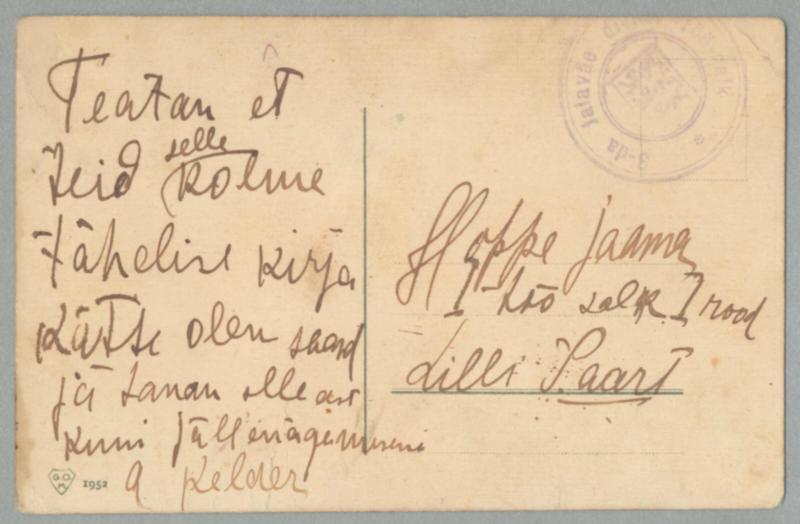 Teatan et
Teid selle kolme
tähelise kirja
kätte olen saand
ja tänan selle eest
kuni jällenägemiseni
A Kelder
G.O.M.
1952
3-da jalaväe
Hoppe jaama
I töö salk I rood
Lilli Paart